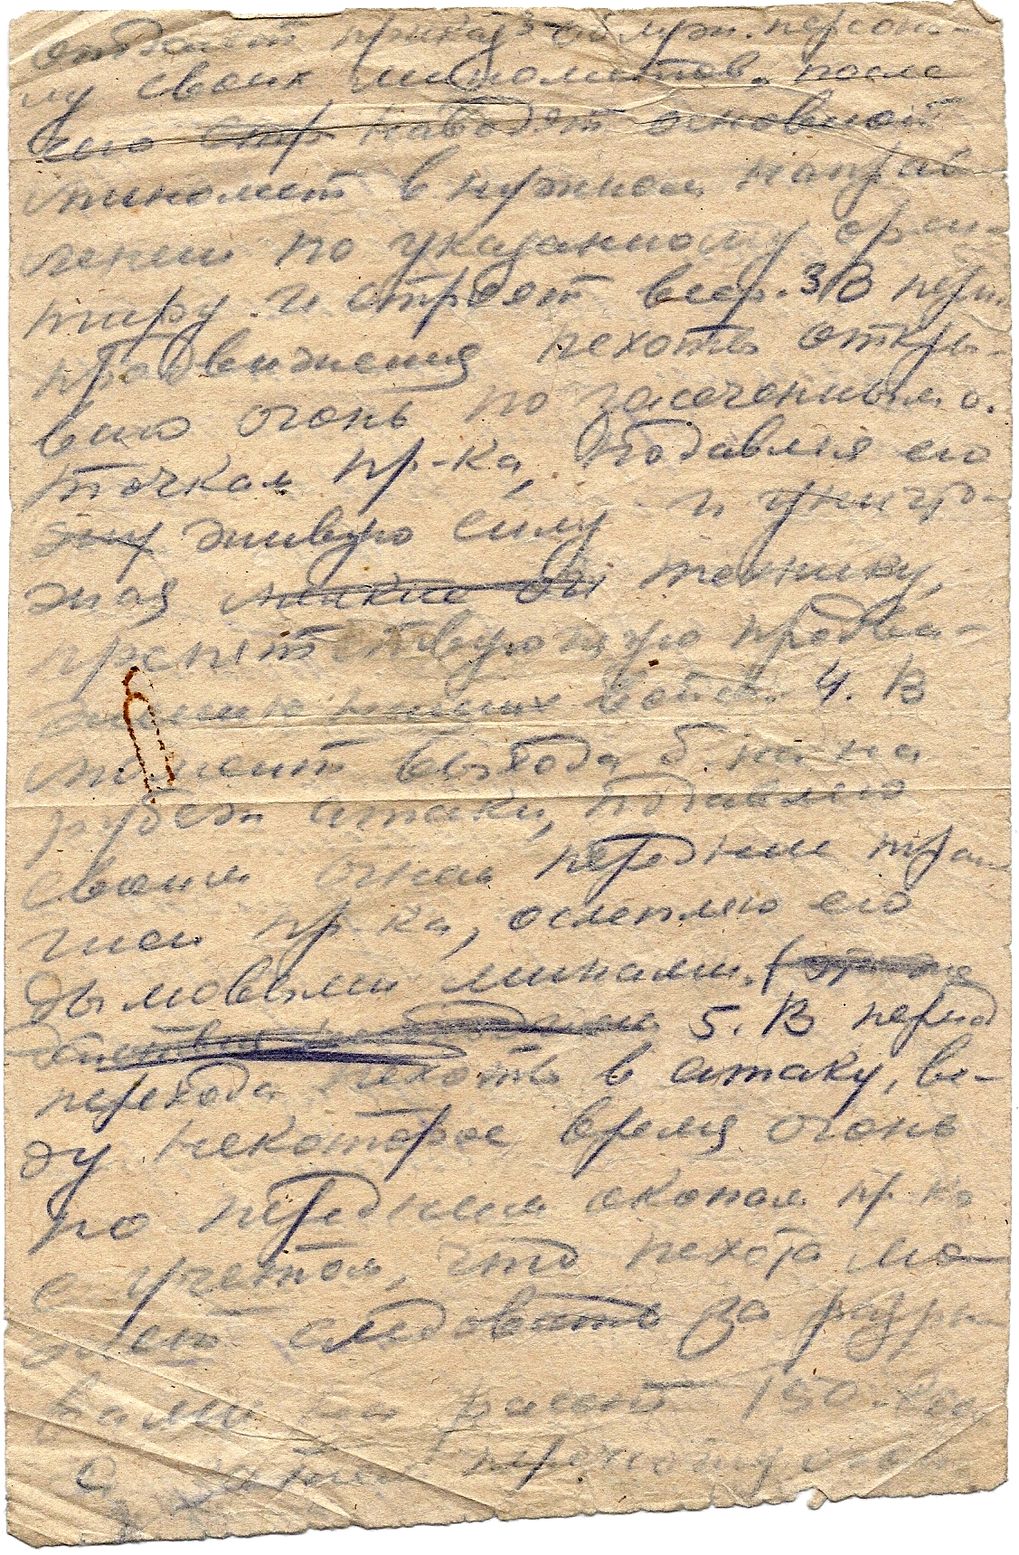 отдает приказ персона-
лу своих минометов, после
чего стр наводят основной
миномет в нужном направ
лении по указанному ориен-
тиру и строят веер. 3 В период
продвижения пехоты откры-
ваю огонь по засеченным о.
точкам пр-ка, подавляя его
жи живую силу и уничто-
жая техникy,
препятствующую продви-
жению наших войск. 4. В
момент выхода б-на на
рубеж атаки, подавляю
своим огнем передние тран
шеи пр-ка, ослепляю его
дымовыми минами.
5. В период
перехода пехоты в атаку, ве-
ду некоторое время огонь
по передним окопам пр-ка
с учетом, что пехота мо-
жет следовать за разры-
вами на расст 150-200
а затем переношу огонь